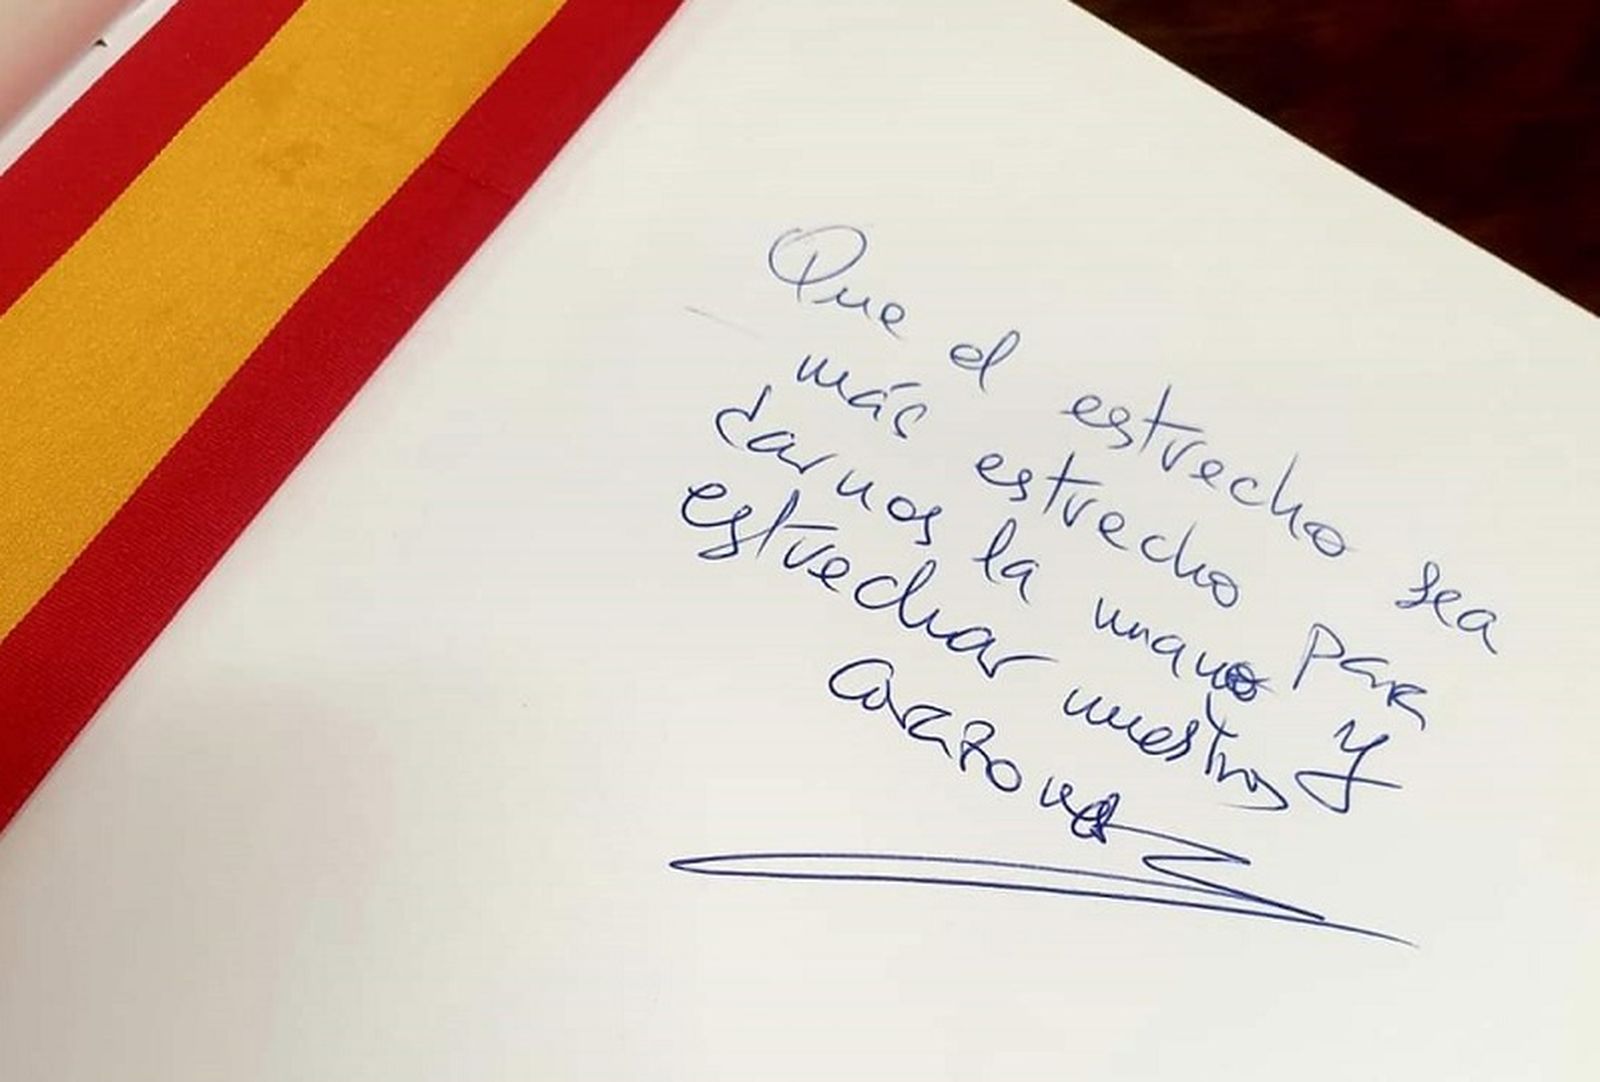 Que el estrecho sea
más estrecho para
darnos la mano y
estrechar nuestros
corazones